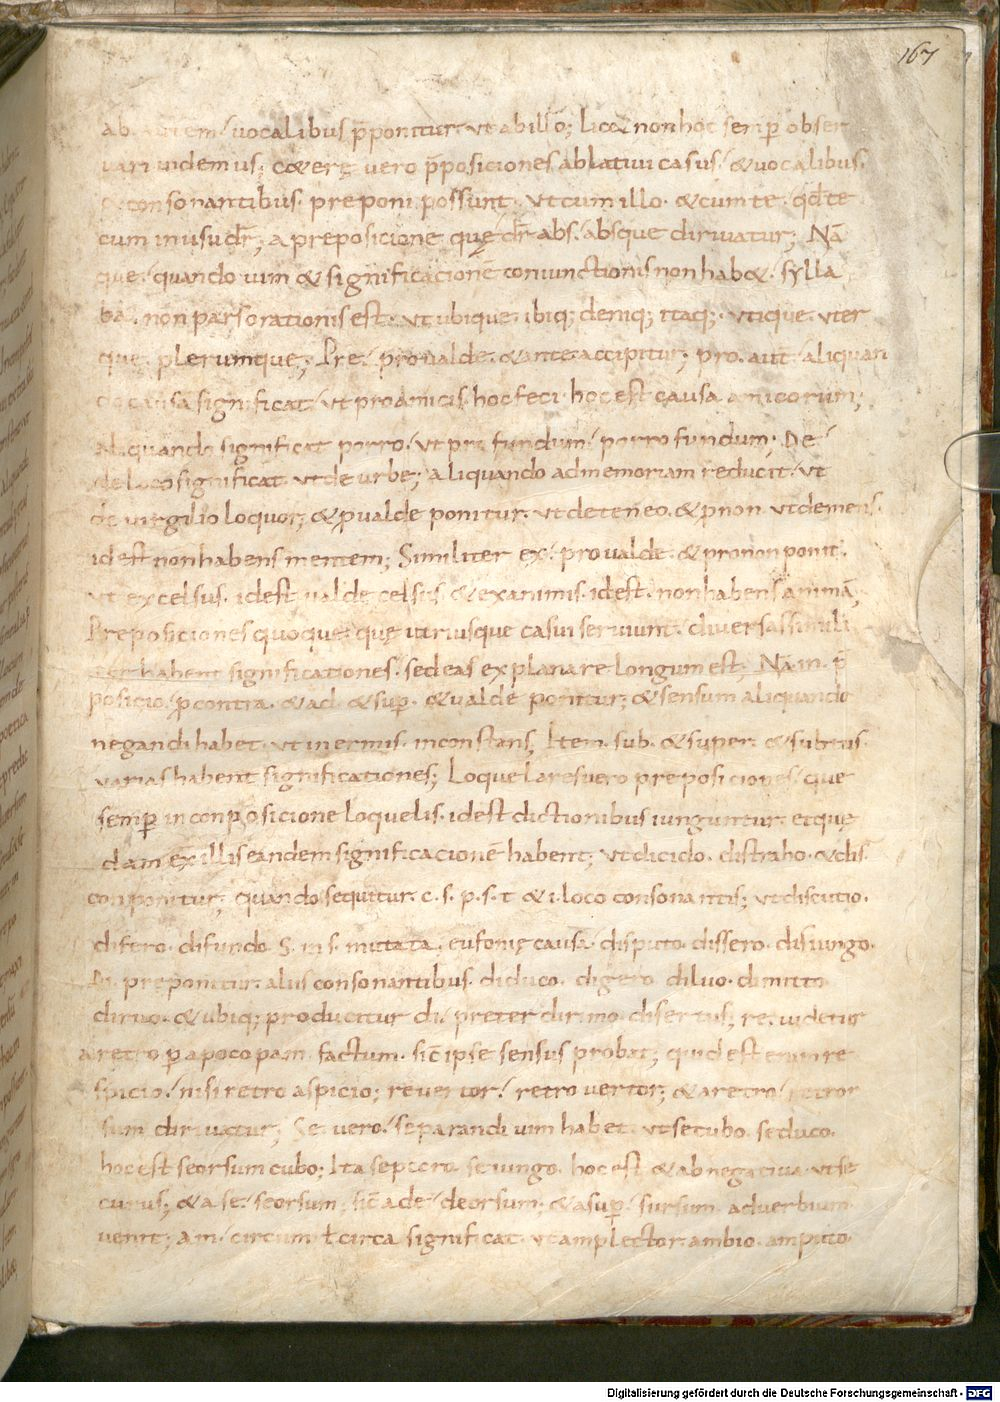 167
ab. autem / uocalibus p̄ponitur. ut ab illo; lic& non hoc semp̄ obser
uari uidemus; c&erę uero p̄posiciones ablatiui casus / & uocalibus.
& consonantibus. preponi possunt. ut cum illo. & cum te / qd̄ te
cum in usu dr̄; a preposicione quę dr̄ abs / absque diriuatur; Nā
que / quando uim & significacionē coniunctionis non hab& / sylla
ba. non pars orationis est. ut ubique. ibiq; deniq; itaq; utique. uter
que. plerumque; Pre / pro ualde. & ante accipitur; pro. aut / aliquan
do causa significat / ut pro amicis hoc feci. hoc est causa amicorum;
Aliquando significat porro / ut pro fundum / porro fundum; De /
de loco significat. ut de urbe; aliquando ad memoriam reducit. ut
de virgilio loquor; & p ualde ponitur. ut detineo. & p non. ut demens.
id est non habens mentem; Similiter ex / pro ualde. & pro non ponit.
ut excelsus. id est ualde celsus. & exanimis. id est. non habens animā;
Preposiciones quoque quę utriusque casui seruiunt. diuersas simili
ter habent significationes. sed eas explanare longum est; Nā. in. p̄
posicio / p contra. & ad. & sup̄. & ualde ponitur; & sensum aliquando
negandi habet. ut inermis. inconstans; Item. sub. & super. & subtus.
varias habent significationes; Loquelares uero preposiciones / que
semp̄ in conposicione loquelis. id est dictionibus iunguntur. et quę
dam ex illis eandem significacionē habent; ut dicido. distraho. & dis.
componitur; quando sequitur. c. s. p. s. t & i. loco consonantis; ut discutio.
difero. difundo. S. in s. mutata. eufonię causa / disputo. dissero. disiungo.
Di. preponitur. aliis consonantibus. diduco. digero. diluo. dimitto
diruo. & ubiq; producitur di / preter dirimo. disertus; re. uidetur
a retro p apocopam. factum. sic̄ ipse sensus probat; quid est enim re
spicio / nisi retro aspicio; reuertor / retro uertor; & a retro / retror
sum diriuatur; Se. uero / separandi uim habet. ut secubo. seduco.
hoc est seorsum cubo; Ita sepero. seiungo. hoc est & abnegatiua. ut se
curus; & a se / seorsum; sic̄ a de / deorsum; & a sup̄ / sursum. aduerbium
uenit; am / circum ł circa significat. ut amplector. ambio. amputo.
Digitalisierung gefördert durch die Deutsche Forschungsgemeinschaft - DFG